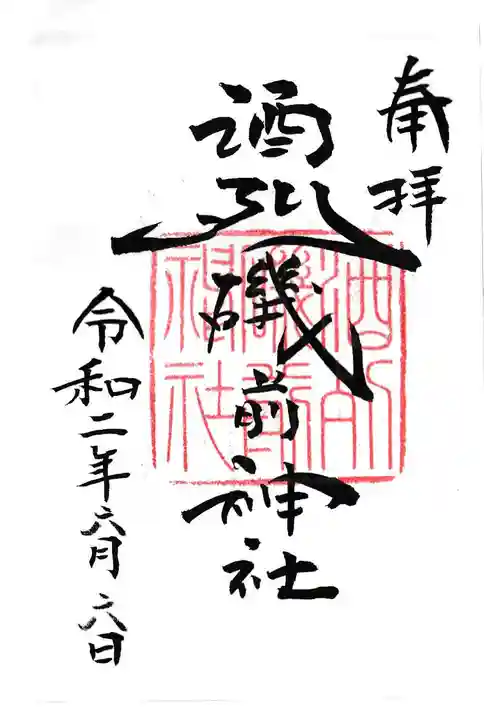 奉拝
酒列磯前神社
令和二年六月六日
酒列
磯前
神社